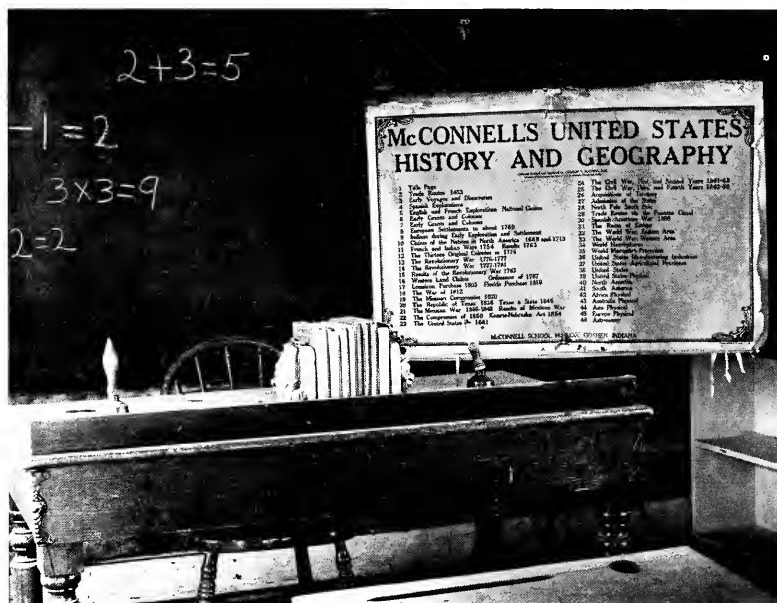 2+3=5
-1=2
3×3=9
2=2
McCONNELL'S UNITED STATES
HISTORY AND GEOGRAPHY
1 Title Page
2 Trade Routes 1453
3 Early Voyages and Discoveries
4 Spanish Explorations
5 English and French Explorations National Claims
6 Early Grants and Colonies
7 Early Grants and Colonies
8 European Settlements to about 1760
9 Indians during Early Exploration and Settlement
10 Claims of the Nations in North America 1689 and 1713
11 French and Indian Wars 1754 Results 1763
12 The Thirteen Original Colonies in 1774
13 The Revolutionary War 1775-1777
14 The Revolutionary War 1777-1781
15 Results of the Revolutionary War 1783
16 Western Land Claims Ordinance of 1787
17 Louisiana Purchase 1803 Florida Purchase 1819
18 The War of 1812
19 The Missouri Compromise 1820
20 The Republic of Texas 1836 Texas a State 1845
21 The Mexican War 1846-1848 Results of Mexican War
22 The Compromise of 1850 Kansas-Nebraska Act 1854
23 The United States in 1861
24 The Civil War, First and Second Years 1861-62
25 The Civil War, Third and Fourth Years 1863-65
26 Acquisitions of Territory
27 Admission of the States
28 North Pole South Pole
29 Trade Routes via the Panama Canal
30 Spanish-American War 1898
31 The Races of Europe
32 The World War Eastern Area
33 The World War Western Area
34 World Hemispheres
35 World Mercator's Projection
36 United States Manufacturing Industries
37 United States Agricultural Provinces
38 United States
39 United States Physical
40 North America
41 South America
42 Africa Physical
43 Australia Physical
44 Asia Physical
45 Europe Physical
46 Astronomy
McCONNELL SCHOOL MAP CO. GOSHEN INDIANA